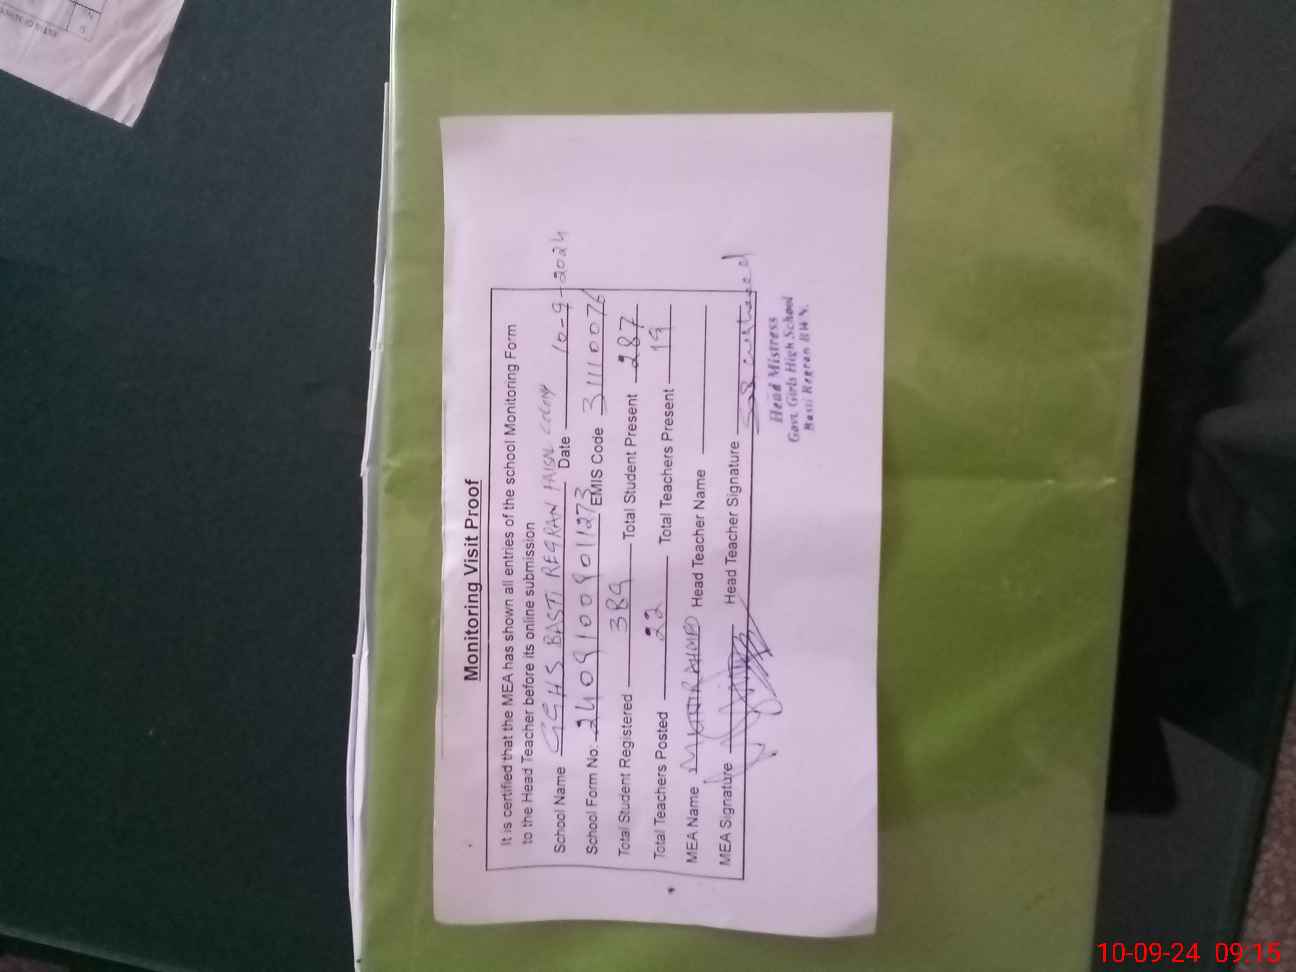 Monitoring Visit Proof
It is certified that the MEA has shown all entries of the school Monitoring Form
to the Head Teacher before its online submission
School Name GGHS BASTI REGRAN FAISAL COLONY Date 10-9-2024
School Form No: 24091009011273 EMIS Code 31110076
Total Student Registered 389 Total Student Present 287
Total Teachers Posted 22 Total Teachers Present 19
MEA Name AHMED Head Teacher Name
MEA Signature Head Teacher Signature
Head Mistress
Govt. Girls High School
Basti Regran BWN.
10-09-24 09:15